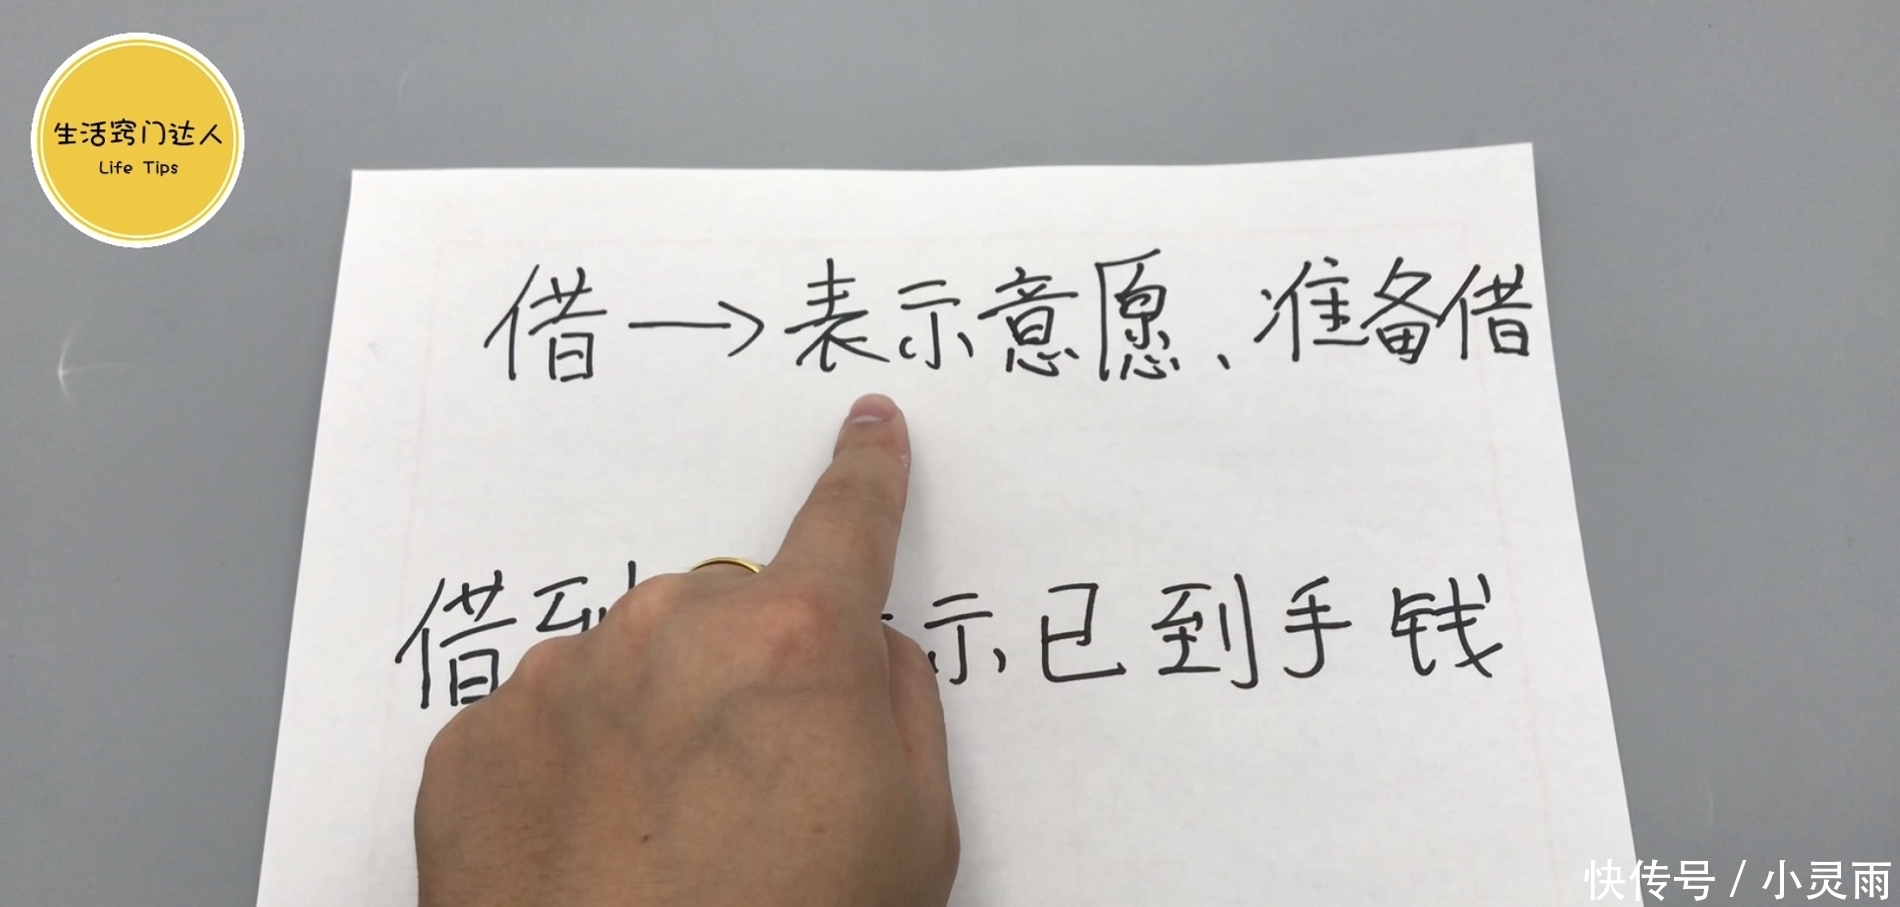 生活窍门达人
Life Tips
借→表示意愿、准备借
借到 示已到手钱
快传号 / 小灵雨